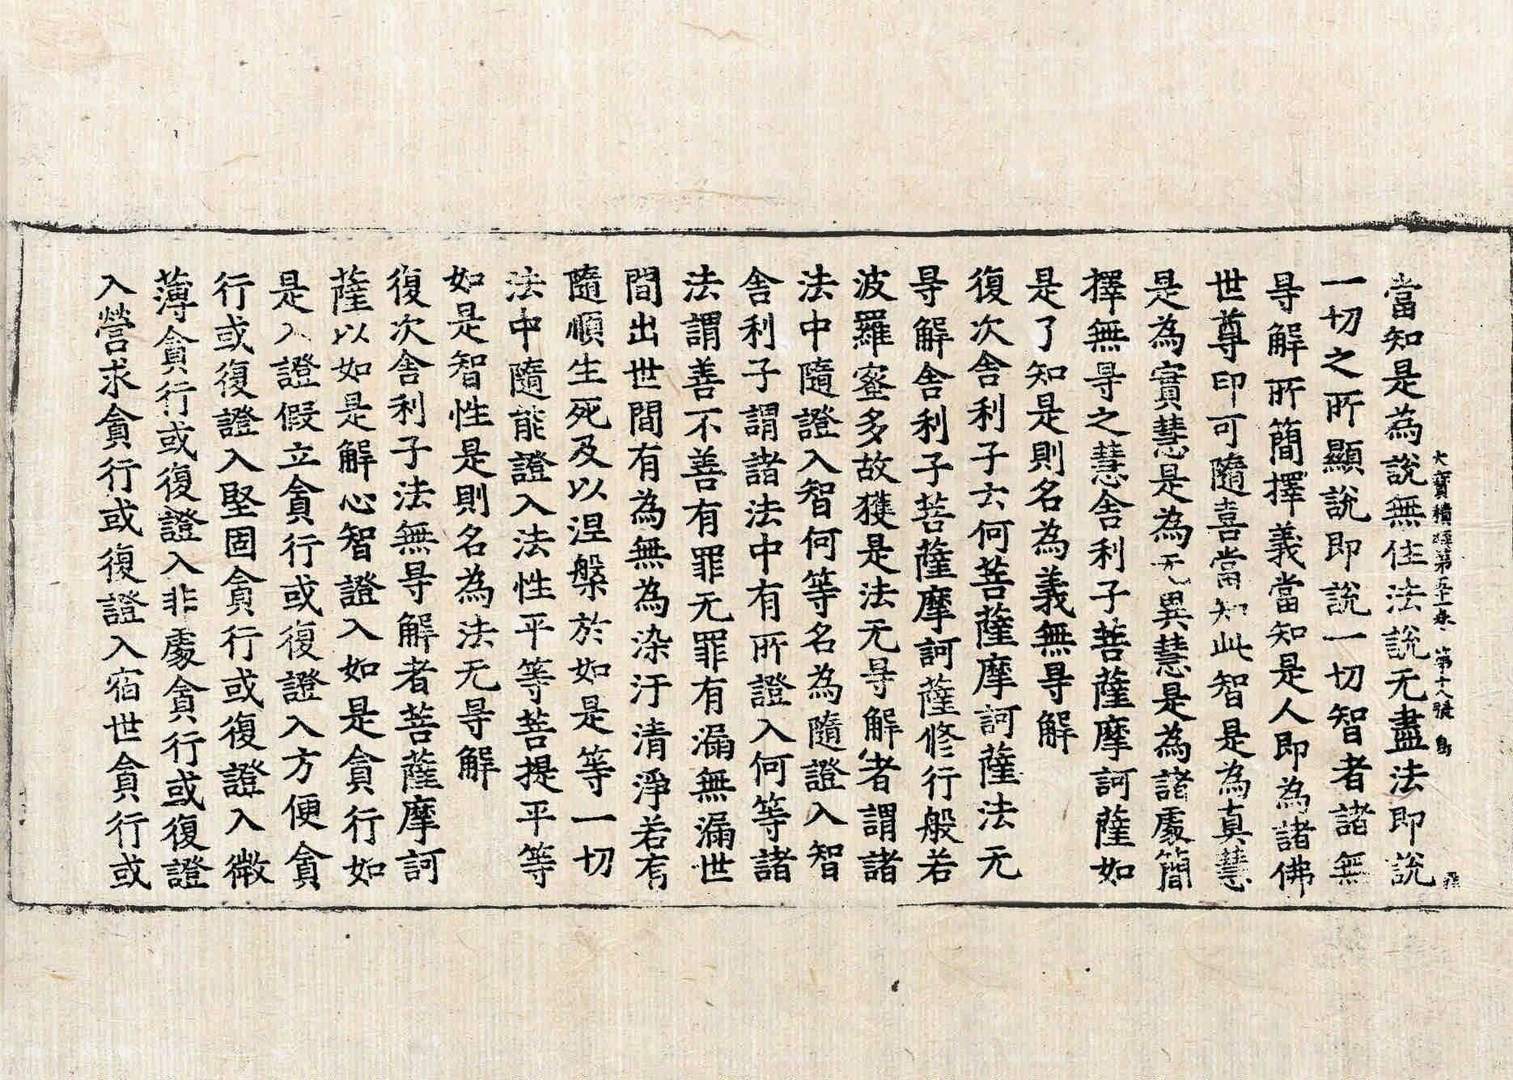 大寶積經第五十一卷 第十八張 鳥
當知是為說無住法說无盡法即說
一切之所顯說即說一切智者諸無
㝵解所簡擇義當知是人即為諸佛
世尊印可隨喜當知此智是為真慧
是為實慧是為无異慧是為諸處簡
擇無㝵之慧舍利子菩薩摩訶薩如
是了知是則名為義無㝵解
復次舍利子云何菩薩摩訶薩法无
㝵解舍利子菩薩摩訶薩修行般若
波羅蜜多故獲是法无㝵解者謂諸
法中隨證入智何等名為隨證入智
舍利子謂諸法中有所證入何等諸
法謂善不善有罪无罪有漏無漏世
間出世間有為無為染汙清淨若有
隨順生死及以涅槃於如是等一切
法中隨能證入法性平等菩提平等
如是智性是則名為法无㝵解
復次舍利子法無㝵解者菩薩摩訶
薩以如是解心智證入如是貪行如
是入證假立貪行或復證入方便貪
行或復證入堅固貪行或復證入微
薄貪行或復證入非處貪行或復證
入營求貪行或復證入宿世貪行或